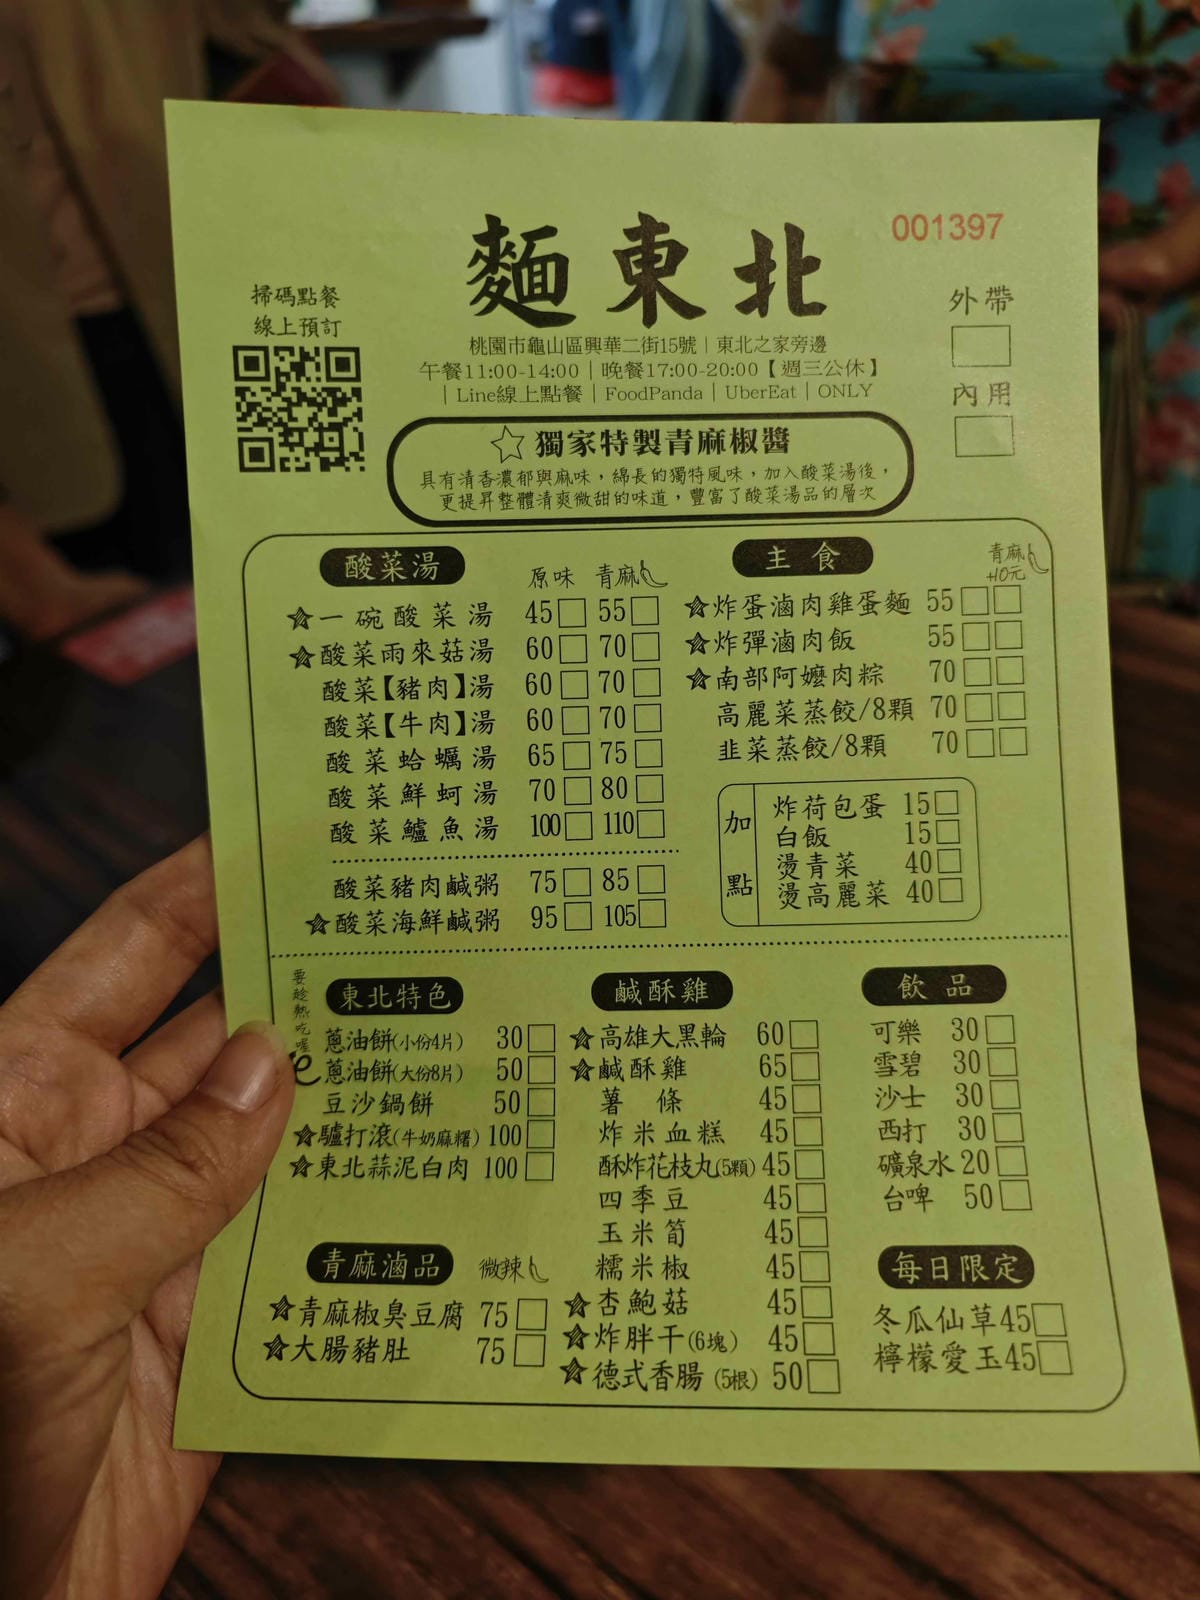 001397
麵東北
掃碼點餐
線上預訂
外帶
內用
桃園市龜山區興華二街15號｜東北之家旁邊
午餐11:00-14:00｜晚餐17:00-20:00【週三公休】
｜Line線上點餐｜FoodPanda｜UberEat｜ONLY
☆獨家特製青麻椒醬
具有清香濃郁與麻味，綿長的獨特風味，加入酸菜湯後，
更提昇整體清爽微甜的味道，豐富了酸菜湯品的層次
酸菜湯 原味 青麻
★一碗酸菜湯 45□ 55□
★酸菜雨來菇湯 60□ 70□
酸菜【豬肉】湯 60□ 70□
酸菜【牛肉】湯 60□ 70□
酸菜蛤蠣湯 65□ 75□
酸菜鮮蚵湯 70□ 80□
酸菜鱸魚湯 100□ 110□
酸菜豬肉鹹粥 75□ 85□
★酸菜海鮮鹹粥 95□ 105□
主食 青麻
+10元
★炸蛋滷肉雞蛋麵 55□□
★炸彈滷肉飯 55□□
★南部阿嬤肉粽 70□□
高麗菜蒸餃/8顆 70□□
韭菜蒸餃/8顆 70□□
加點
炸荷包蛋 15□
白飯 15□
燙青菜 40□
燙高麗菜 40□
要趁熱吃喔
東北特色
蔥油餅(小份4片) 30□
蔥油餅(大份8片) 50□
豆沙鍋餅 50□
★驢打滾(牛奶麻糬) 100□
★東北蒜泥白肉 100□
青麻滷品 微辣
★青麻椒臭豆腐 75□
★大腸豬肚 75□
鹹酥雞
★高雄大黑輪 60□
★鹹酥雞 65□
薯條 45□
炸米血糕 45□
酥炸花枝丸(5顆) 45□
四季豆 45□
玉米筍 45□
糯米椒 45□
★杏鮑菇 45□
★炸胖干(6塊) 45□
★德式香腸(5根) 50□
飲品
可樂 30□
雪碧 30□
沙士 30□
西打 30□
礦泉水 20□
台啤 50□
每日限定
冬瓜仙草45□
檸檬愛玉45□